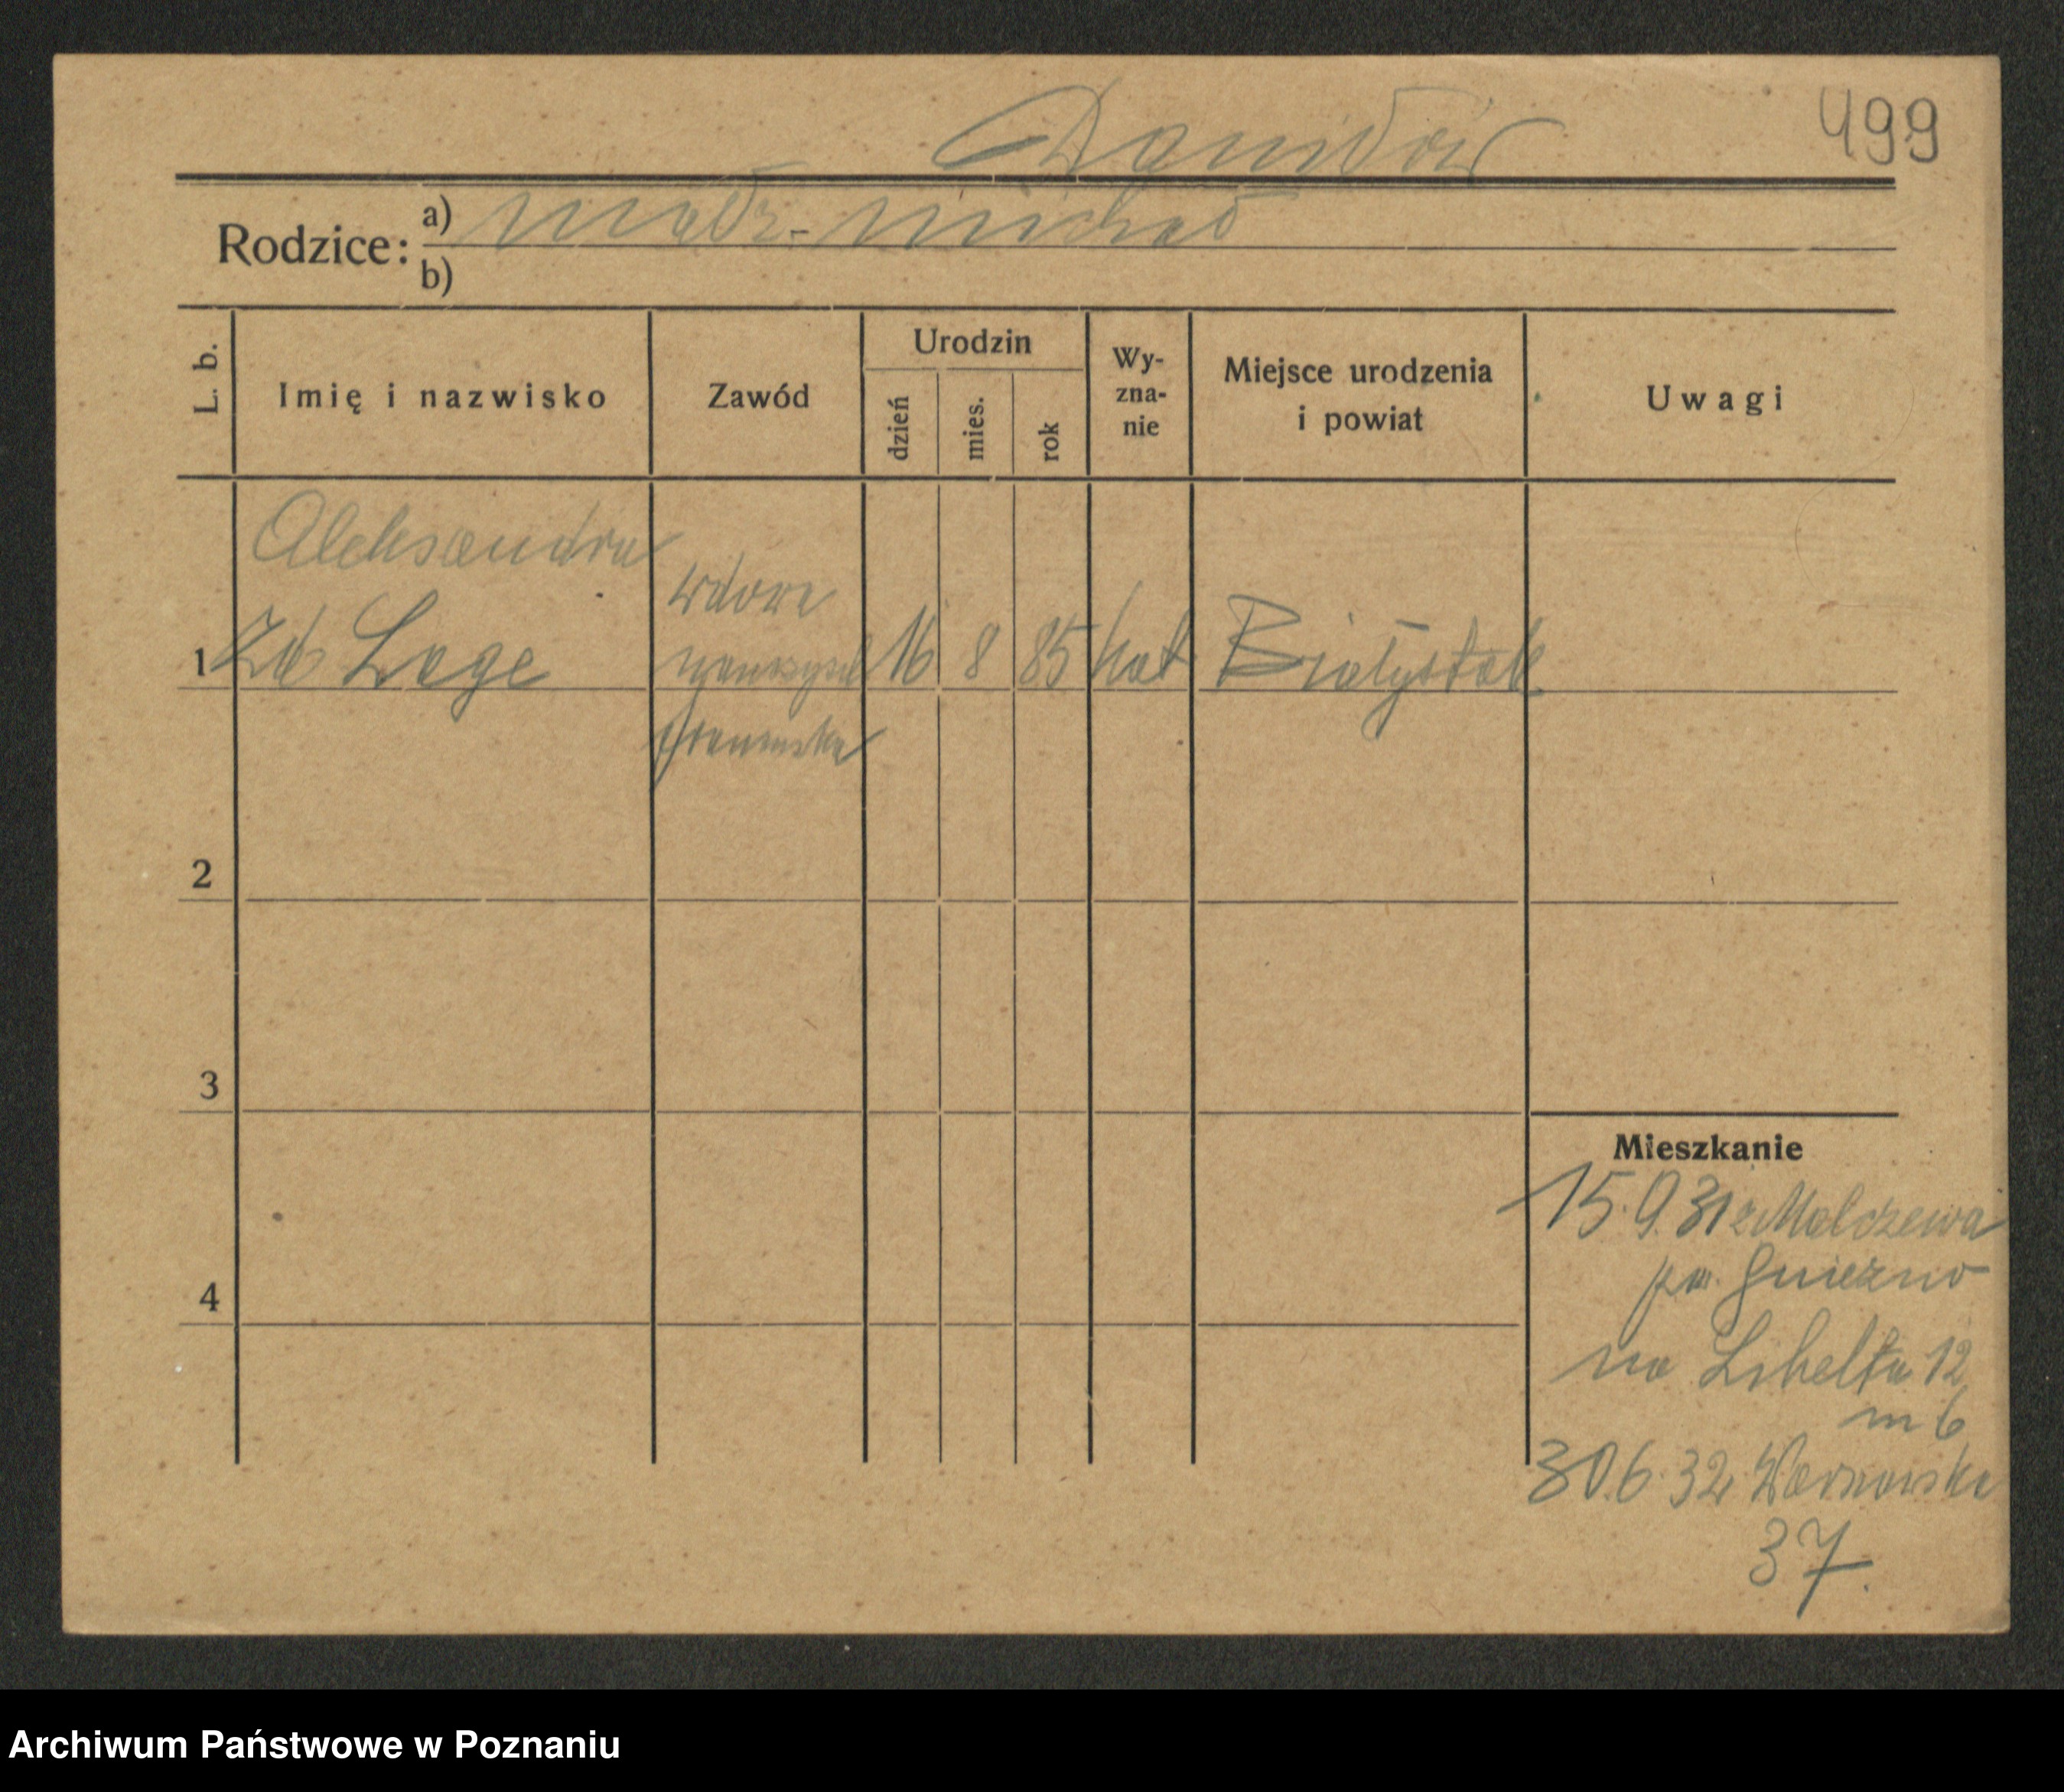 499
Rodzice:
a) Małż. Michał
b)
L. b.
Imię i nazwisko
Zawód
Urodzin
dzień
mies.
rok
Wy-
zna-
nie
Miejsce urodzenia
i powiat
Uwagi
Aleksandra
wdowa
1 zd Lage 16 8 85 kat Białystok
2
3
4
Mieszkanie
15.9.31 z Malczewa
pw. Gniezno
na Libelta 12
m 6
30.6.32
37.
Archiwum Państwowe w Poznaniu